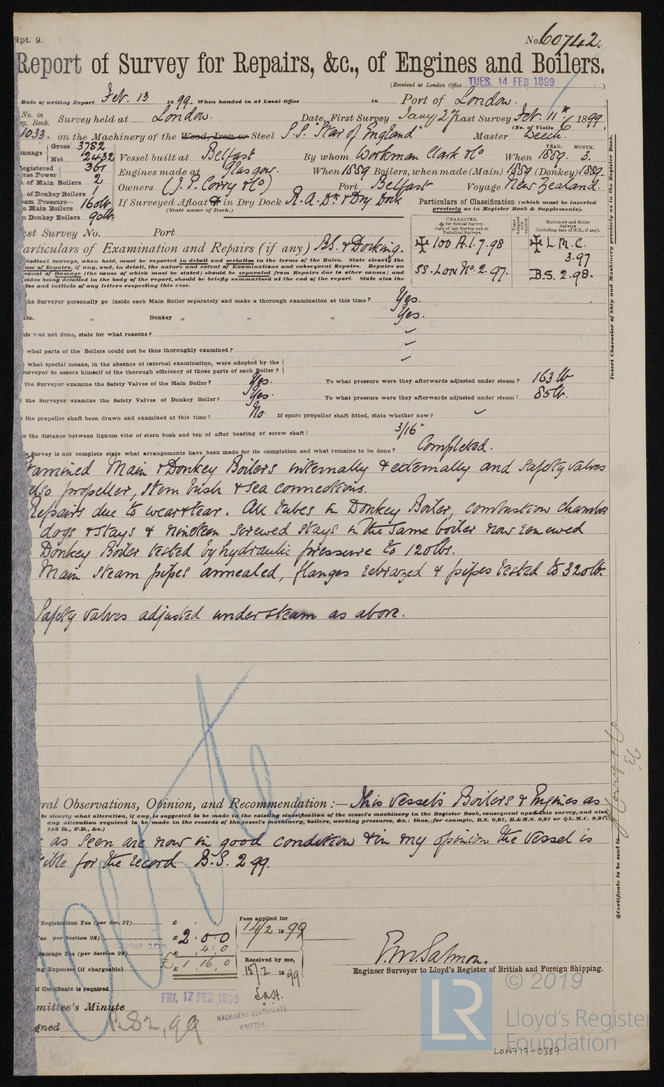 Rpt. 9.
No. 60742.
Report of Survey for Repairs, &c., of Engines and Boilers.
(Received at London Office TUES. 14 FEB 1899)
Date of writing Report Feb. 13 1899. When handed in at Local Office 18 Port of London.
No. in Survey held at London. Date, First Survey Jany 27 Last Survey Feb. 11th 1899
Reg. Book. (No. of Visits 6)
1033. on the Machinery of the Wood, Iron or Steel S.S. "Star of England" Master Beech.
Gross 3782
Net 2432 Vessel built at Belfast By whom Workman Clark & Co When 1889. 3.
YEAR. MONTH.
Registered Horse Power 367 Engines made at Glasgow. When 1889 Boilers, when made (Main) 1889 (Donkey) 1889.
of Main Boilers 2 Owners (J. P. Corry & Co) Port Belfast Voyage New Zealand.
of Donkey Boilers 1
Main Boilers 160 lb. If Surveyed Afloat or in Dry Dock R.A. Dk & Dry Dock
(State name of Dock.)
Donkey Boilers 90 lb.
Particulars of Classification (which must be inserted precisely as in Register Book & Supplements).
Last Survey No. Port
CHARACTER.
100 A.1. 7.98
SS. Lon No. 2. 97.
L M C.
3.97
B.S. 2.98.
Particulars of Examination and Repairs (if any) B.S. & Docking.
the Surveyor personally go inside each Main Boiler separately and make a thorough examination at this time? Yes.
Do. „ Donkey „ „ „ Yes.
this was not done, state for what reasons? –
what parts of the Boilers could not be thoroughly examined? –
what special means, in the absence of internal examination, were adopted by the
surveyor to assure himself of the thorough efficiency of those parts of each Boiler? –
the Surveyor examine the Safety Valves of the Main Boiler? Yes. To what pressure were they afterwards adjusted under steam? 163 lb
the Surveyor examine the Safety Valves of Donkey Boiler? Yes. To what pressure were they afterwards adjusted under steam? 85 lb.
the propeller shaft been drawn and examined at this time? No If spare propeller shaft fitted, state whether new? –
the distance between lignum vitæ of stern bush and top of after bearing of screw shaft? 3/16"
Survey is not complete state what arrangements have been made for its completion and what remains to be done? Completed.
Examined Main & Donkey Boilers internally & externally and Safety valves
also propeller, Stern bush & Sea connections.
Repairs due to wear & tear. All tubes in Donkey Boiler, combustion chamber
dogs & stays & nineteen screwed stays in the same boiler now renewed
Donkey Boiler tested by hydraulic pressure to 120 lbs.
Main steam pipes annealed, flanges rebrazed & pipes tested to 320 lb.
Safety valves adjusted under steam as above.
General Observations, Opinion, and Recommendation :— This vessel's Boilers & Engines as
as seen are now in good condition & in my opinion the vessel is
eligible for the record B.S. 2 99.
Registration Fee (per Sec. 27) £
Fee (per Section 28) £ 2 . 0 . 0
Damage Fee (per Section 28) £ 4 : 0
Expenses (if chargeable) £ 1 . 16 . 0
Fees applied for
14/2 1899
Received by me,
15/2 1899
F. W. Salmon.
Engineer Surveyor to Lloyd's Register of British and Foreign Shipping.
if Certificate is required
Committee's Minute FRI. 17 FEB 1899
MACHINERY CERTIFICATE
WRITTEN.
Assigned B.S 2,99
LR
© 2019
Lloyd's Register
Foundation
LON747-0387